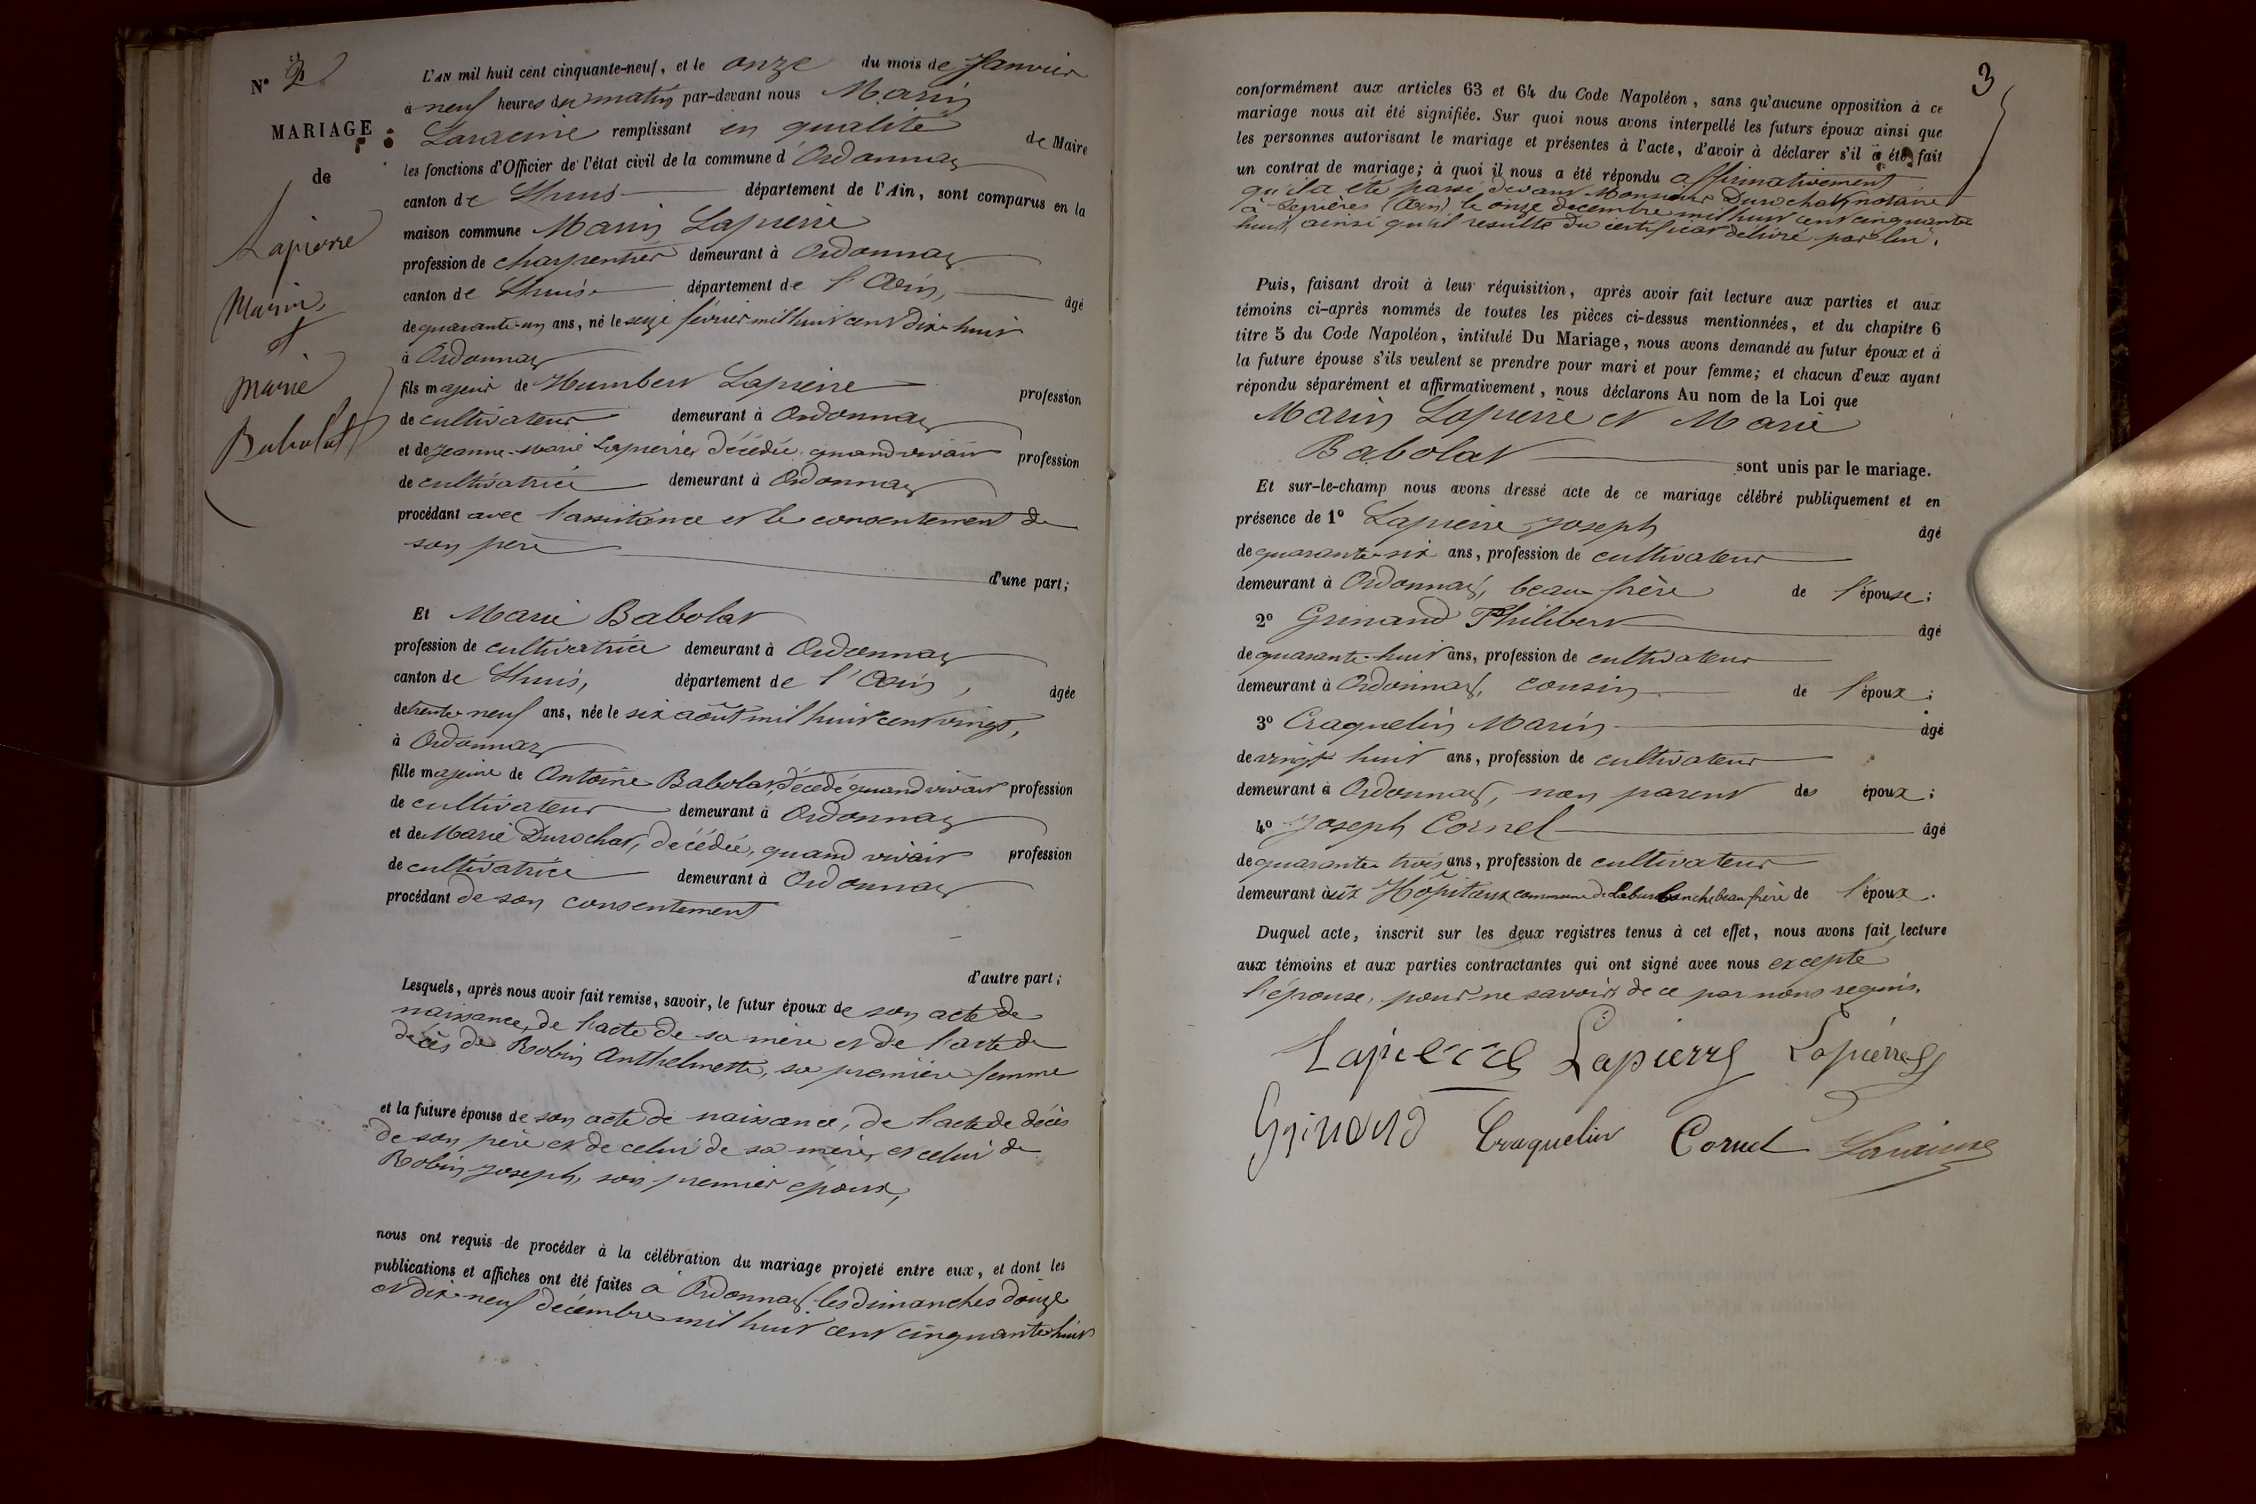 N° 2
MARIAGE
de
Lapierre
Marin
et
Marie
Babolat
L'AN mil huit cent cinquante-neuf, et le onze du mois de Janvier
à neuf heures du matin par-devant nous Marin
Laraine remplissant en qualité de Maire
les fonctions d'Officier de l'état civil de la commune d'Ordonnaz
canton de Lhuis département de l'Ain, sont comparus en la
maison commune Marin Lapierre
profession de charpentier demeurant à Ordonnaz
canton de Lhuis département de l'Ain, âgé
de quarante-un ans, né le seize février mil huit cent dix-huit
à Ordonnaz
fils majeur de Humbert Lapierre profession
de cultivateur demeurant à Ordonnaz
et de Jeanne-Marie Lapierre, décédée quand vivait profession
de cultivatrice demeurant à Ordonnaz
procédant avec l'assistance et le consentement de
son père
d'une part;
Et Marie Babolat
profession de cultivatrice demeurant à Ordonnaz
canton de Lhuis, département de l'Ain, âgée
de trente-neuf ans, née le six août mil huit cent vingt,
à Ordonnaz
fille majeure de Antoine Babolat, décédé quand vivait profession
de cultivateur demeurant à Ordonnaz
et de Marie Durochat, décédée, quand vivait profession
de cultivatrice demeurant à Ordonnaz
procédant de son consentement
d'autre part;
Lesquels, après nous avoir fait remise, savoir, le futur époux de son acte de
naissance, de l'acte de sa mère et de l'acte de
décès de Robin Anthelmette, sa première femme
et la future épouse de son acte de naissance, de l'acte de décès
de son père et de celui de sa mère, et celui de
Robin Joseph, son premier époux,
nous ont requis de procéder à la célébration du mariage projeté entre eux, et dont les
publications et affiches ont été faites à Ordonnaz, les dimanches douze
et dix-neuf décembre mil huit cent cinquante-huit
3
conformément aux articles 63 et 64 du Code Napoléon, sans qu'aucune opposition à ce
mariage nous ait été signifiée. Sur quoi nous avons interpellé les futurs époux ainsi que
les personnes autorisant le mariage et présentes à l'acte, d'avoir à déclarer s'il a été fait
un contrat de mariage; à quoi il nous a été répondu affirmativement
qu'il a été passé devant Monsieur Durochat, notaire
à (Ain) le onze décembre mil huit cent cinquante
huit, ainsi qu'il résulte du certificat délivré par lui.
Puis, faisant droit à leur réquisition, après avoir fait lecture aux parties et aux
témoins ci-après nommés de toutes les pièces ci-dessus mentionnées, et du chapitre 6
titre 5 du Code Napoléon, intitulé Du Mariage, nous avons demandé au futur époux et à
la future épouse s'ils veulent se prendre pour mari et pour femme; et chacun d'eux ayant
répondu séparément et affirmativement, nous déclarons Au nom de la Loi que
Marin Lapierre et Marie
Babolat sont unis par le mariage.
Et sur-le-champ nous avons dressé acte de ce mariage célébré publiquement et en
présence de 1° Lapierre Joseph âgé
de quarante-six ans, profession de cultivateur
demeurant à Ordonnaz, beau-frère de l'épouse;
2° Grinand Philibert âgé
de quarante-huit ans, profession de cultivateur
demeurant à Ordonnaz, cousin de l'époux;
3° Craquelin Marin âgé
de vingt huit ans, profession de cultivateur
demeurant à Ordonnaz, non parent des époux;
4° Joseph Cornel âgé
de quarante trois ans, profession de cultivateur
demeurant aux Hôpitaux commune de Laburbanche beau frère de l'époux.
Duquel acte, inscrit sur les deux registres tenus à cet effet, nous avons fait lecture
aux témoins et aux parties contractantes qui ont signé avec nous excepté
l'épouse, pour ne savoir, de ce par nous requis.
Lapierre Lapierre Lapierre
Grinand Craquelin Cornel Laraine